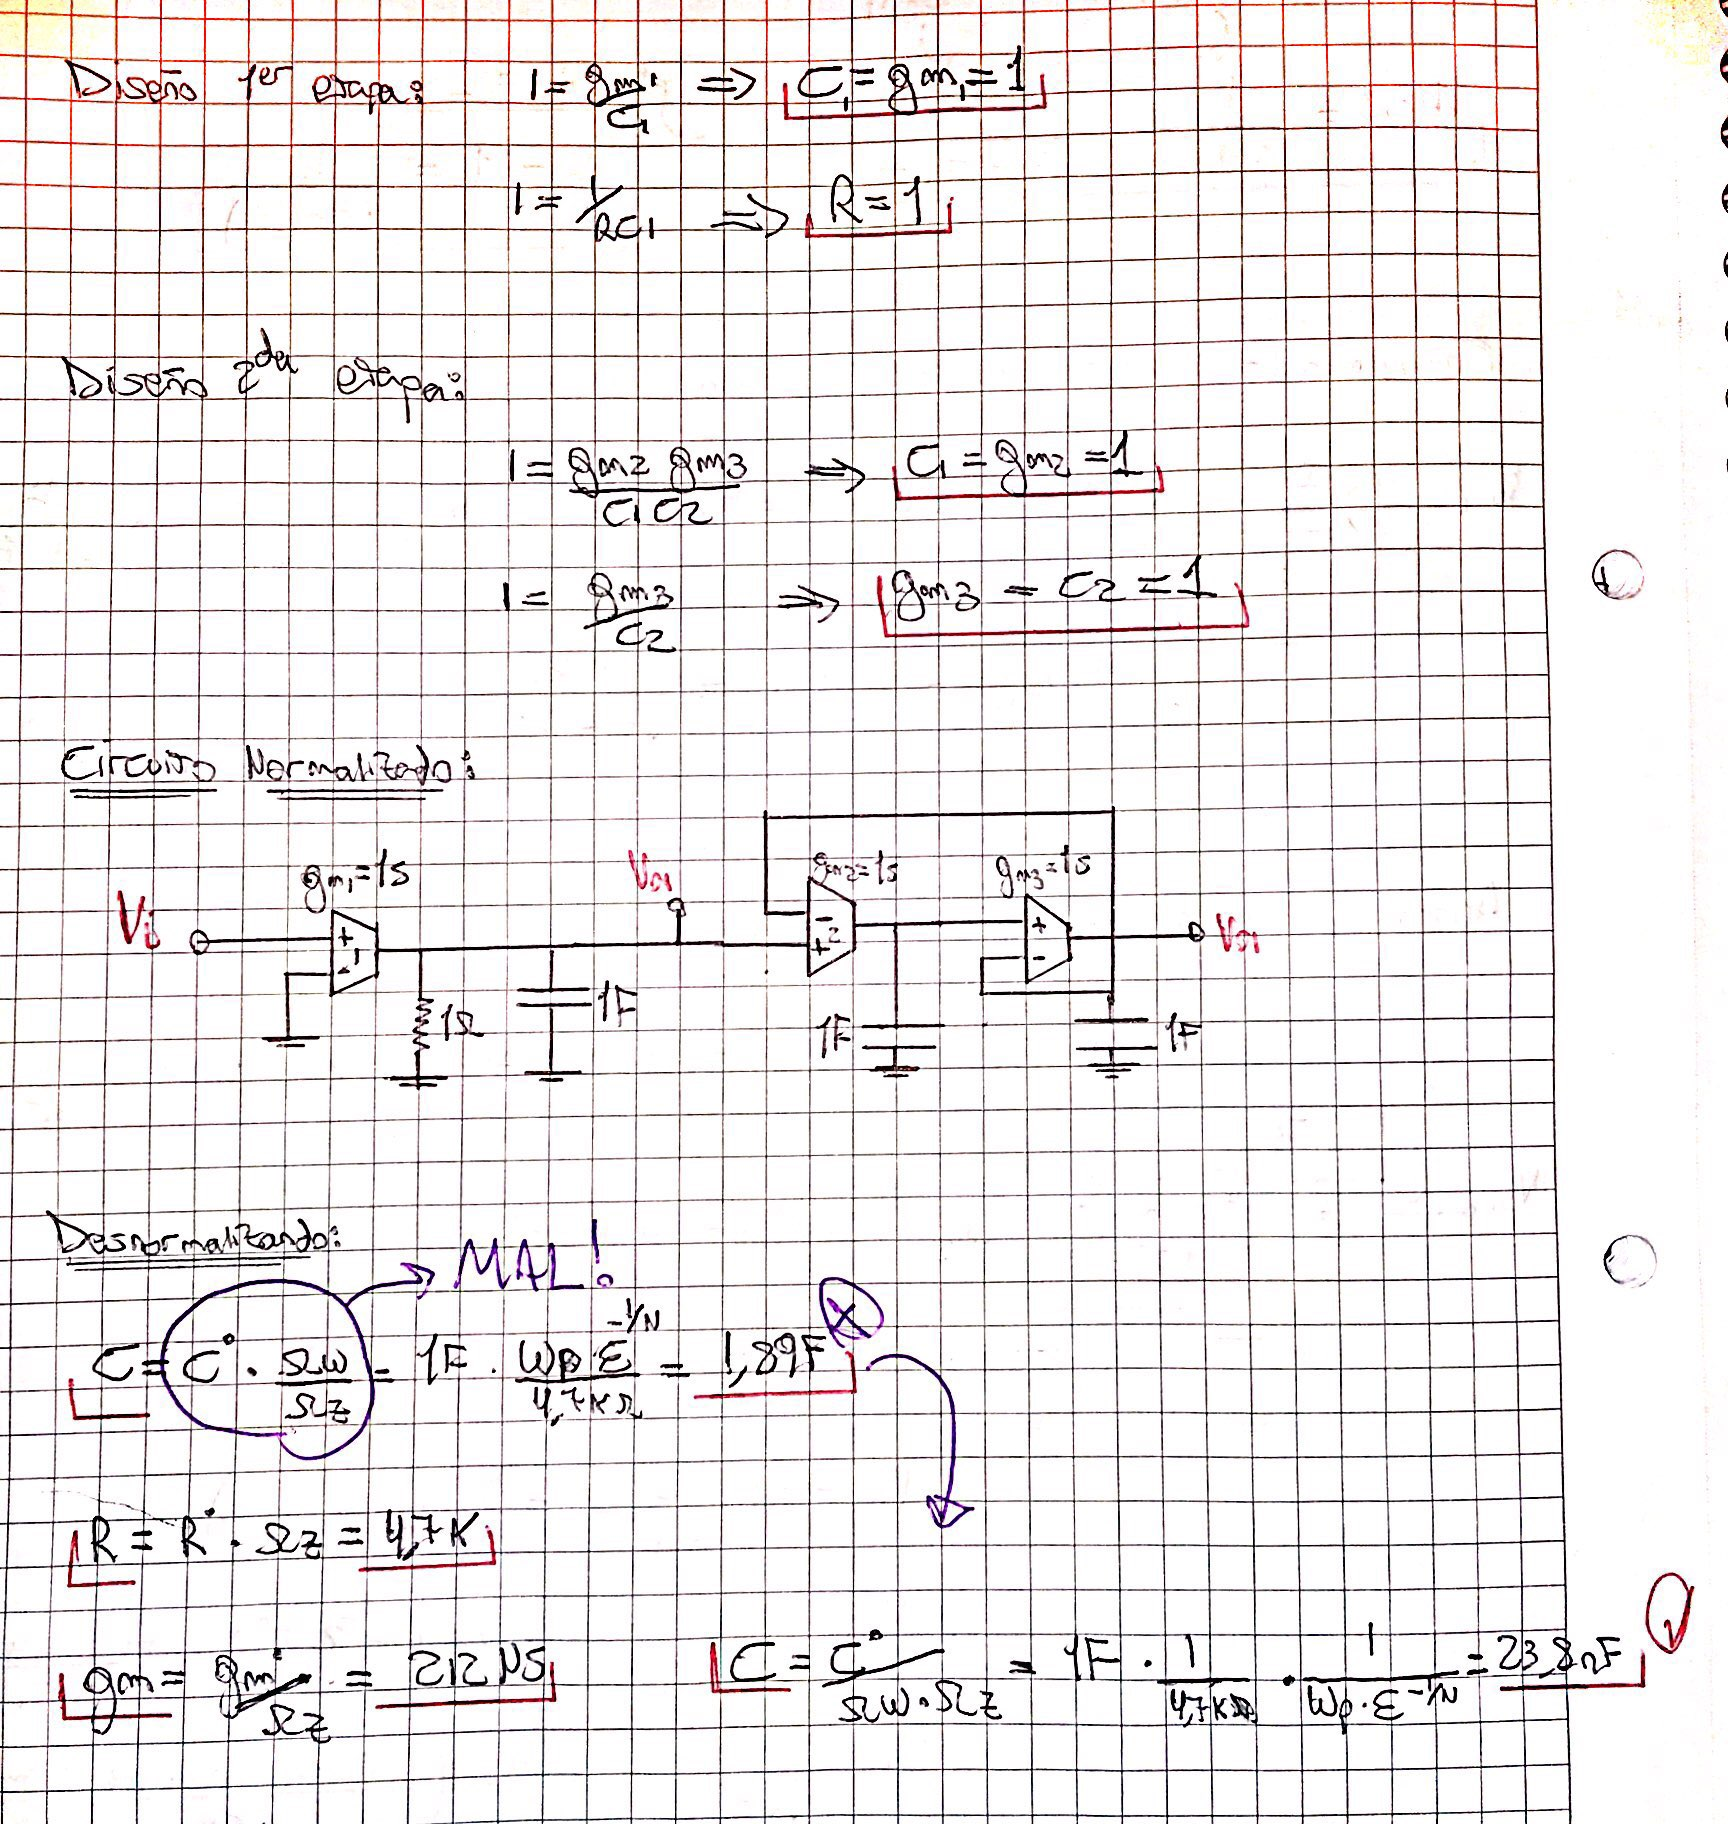 Diseño 1er etapa: 1 = gm1/C1 ⇒ C1 = gm1 = 1
1 = 1/RC1 ⇒ R = 1
Diseño 2da etapa:
1 = gm2 gm3/C1 C2 ⇒ C1 = gm2 = 1
1 = gm3/C2 ⇒ gm3 = C2 = 1
Circuito Normalizado:
gm1=1s Vo1 gm2=1s gm3=1s
Vi + - 1 - + 2 + - Vo1
1Ω 1F 1F 1F
Desnormalizando:
MAL!
C = C° · Ωw/Ωz = 1F · Wp ε^-1/N/4,7KΩ = 1,89F X
R = R° · Ωz = 4,7K
gm = gm°/Ωz = 212 µS C = C°/Ωw·Ωz = 1F · 1/4,7KΩ · 1/Wp·ε^-1/N = 23,8nF